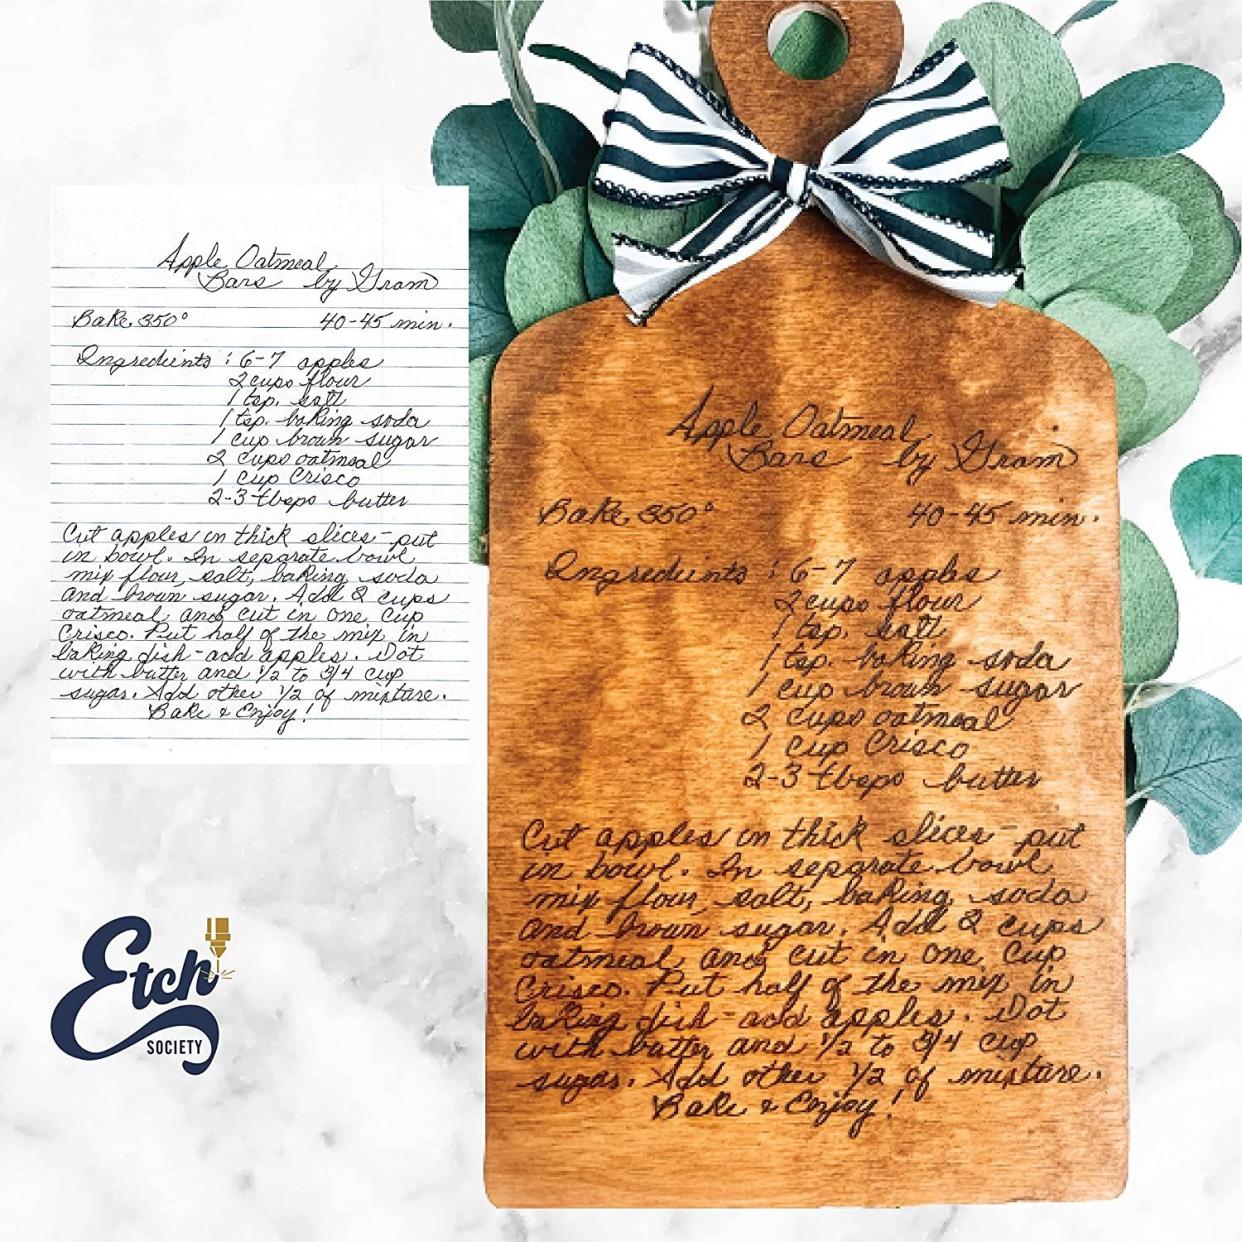 Apple Oatmeal
Bars by Gram
Bake 350° 40-45 min.
Ingredients : 6-7 apples
2 cups flour
1 tsp. salt
1 tsp. baking soda
1 cup brown sugar
2 cups oatmeal
1 cup Crisco
2-3 tbsps butter
Cut apples in thick slices - put
in bowl. In separate bowl
mix flour, salt, baking soda
and brown sugar. Add 2 cups
oatmeal and cut in one cup
Crisco. Put half of the mix in
baking dish - add apples. Dot
with butter and 1/2 to 3/4 cup
sugar. Add other 1/2 of mixture.
Bake & Enjoy!
Apple Oatmeal
Bars by Gram
Bake 350° 40-45 min.
Ingredients : 6-7 apples
2 cups flour
1 tsp. salt
1 tsp. baking soda
1 cup brown sugar
2 cups oatmeal
1 cup Crisco
2-3 tbsps butter
Cut apples in thick slices - put
in bowl. In separate bowl
mix flour, salt, baking soda
and brown sugar. Add 2 cups
oatmeal and cut in one cup
Crisco. Put half of the mix in
baking dish - add apples. Dot
with butter and 1/2 to 3/4 cup
sugar. Add other 1/2 of mixture.
Bake & Enjoy!
Etch
SOCIETY